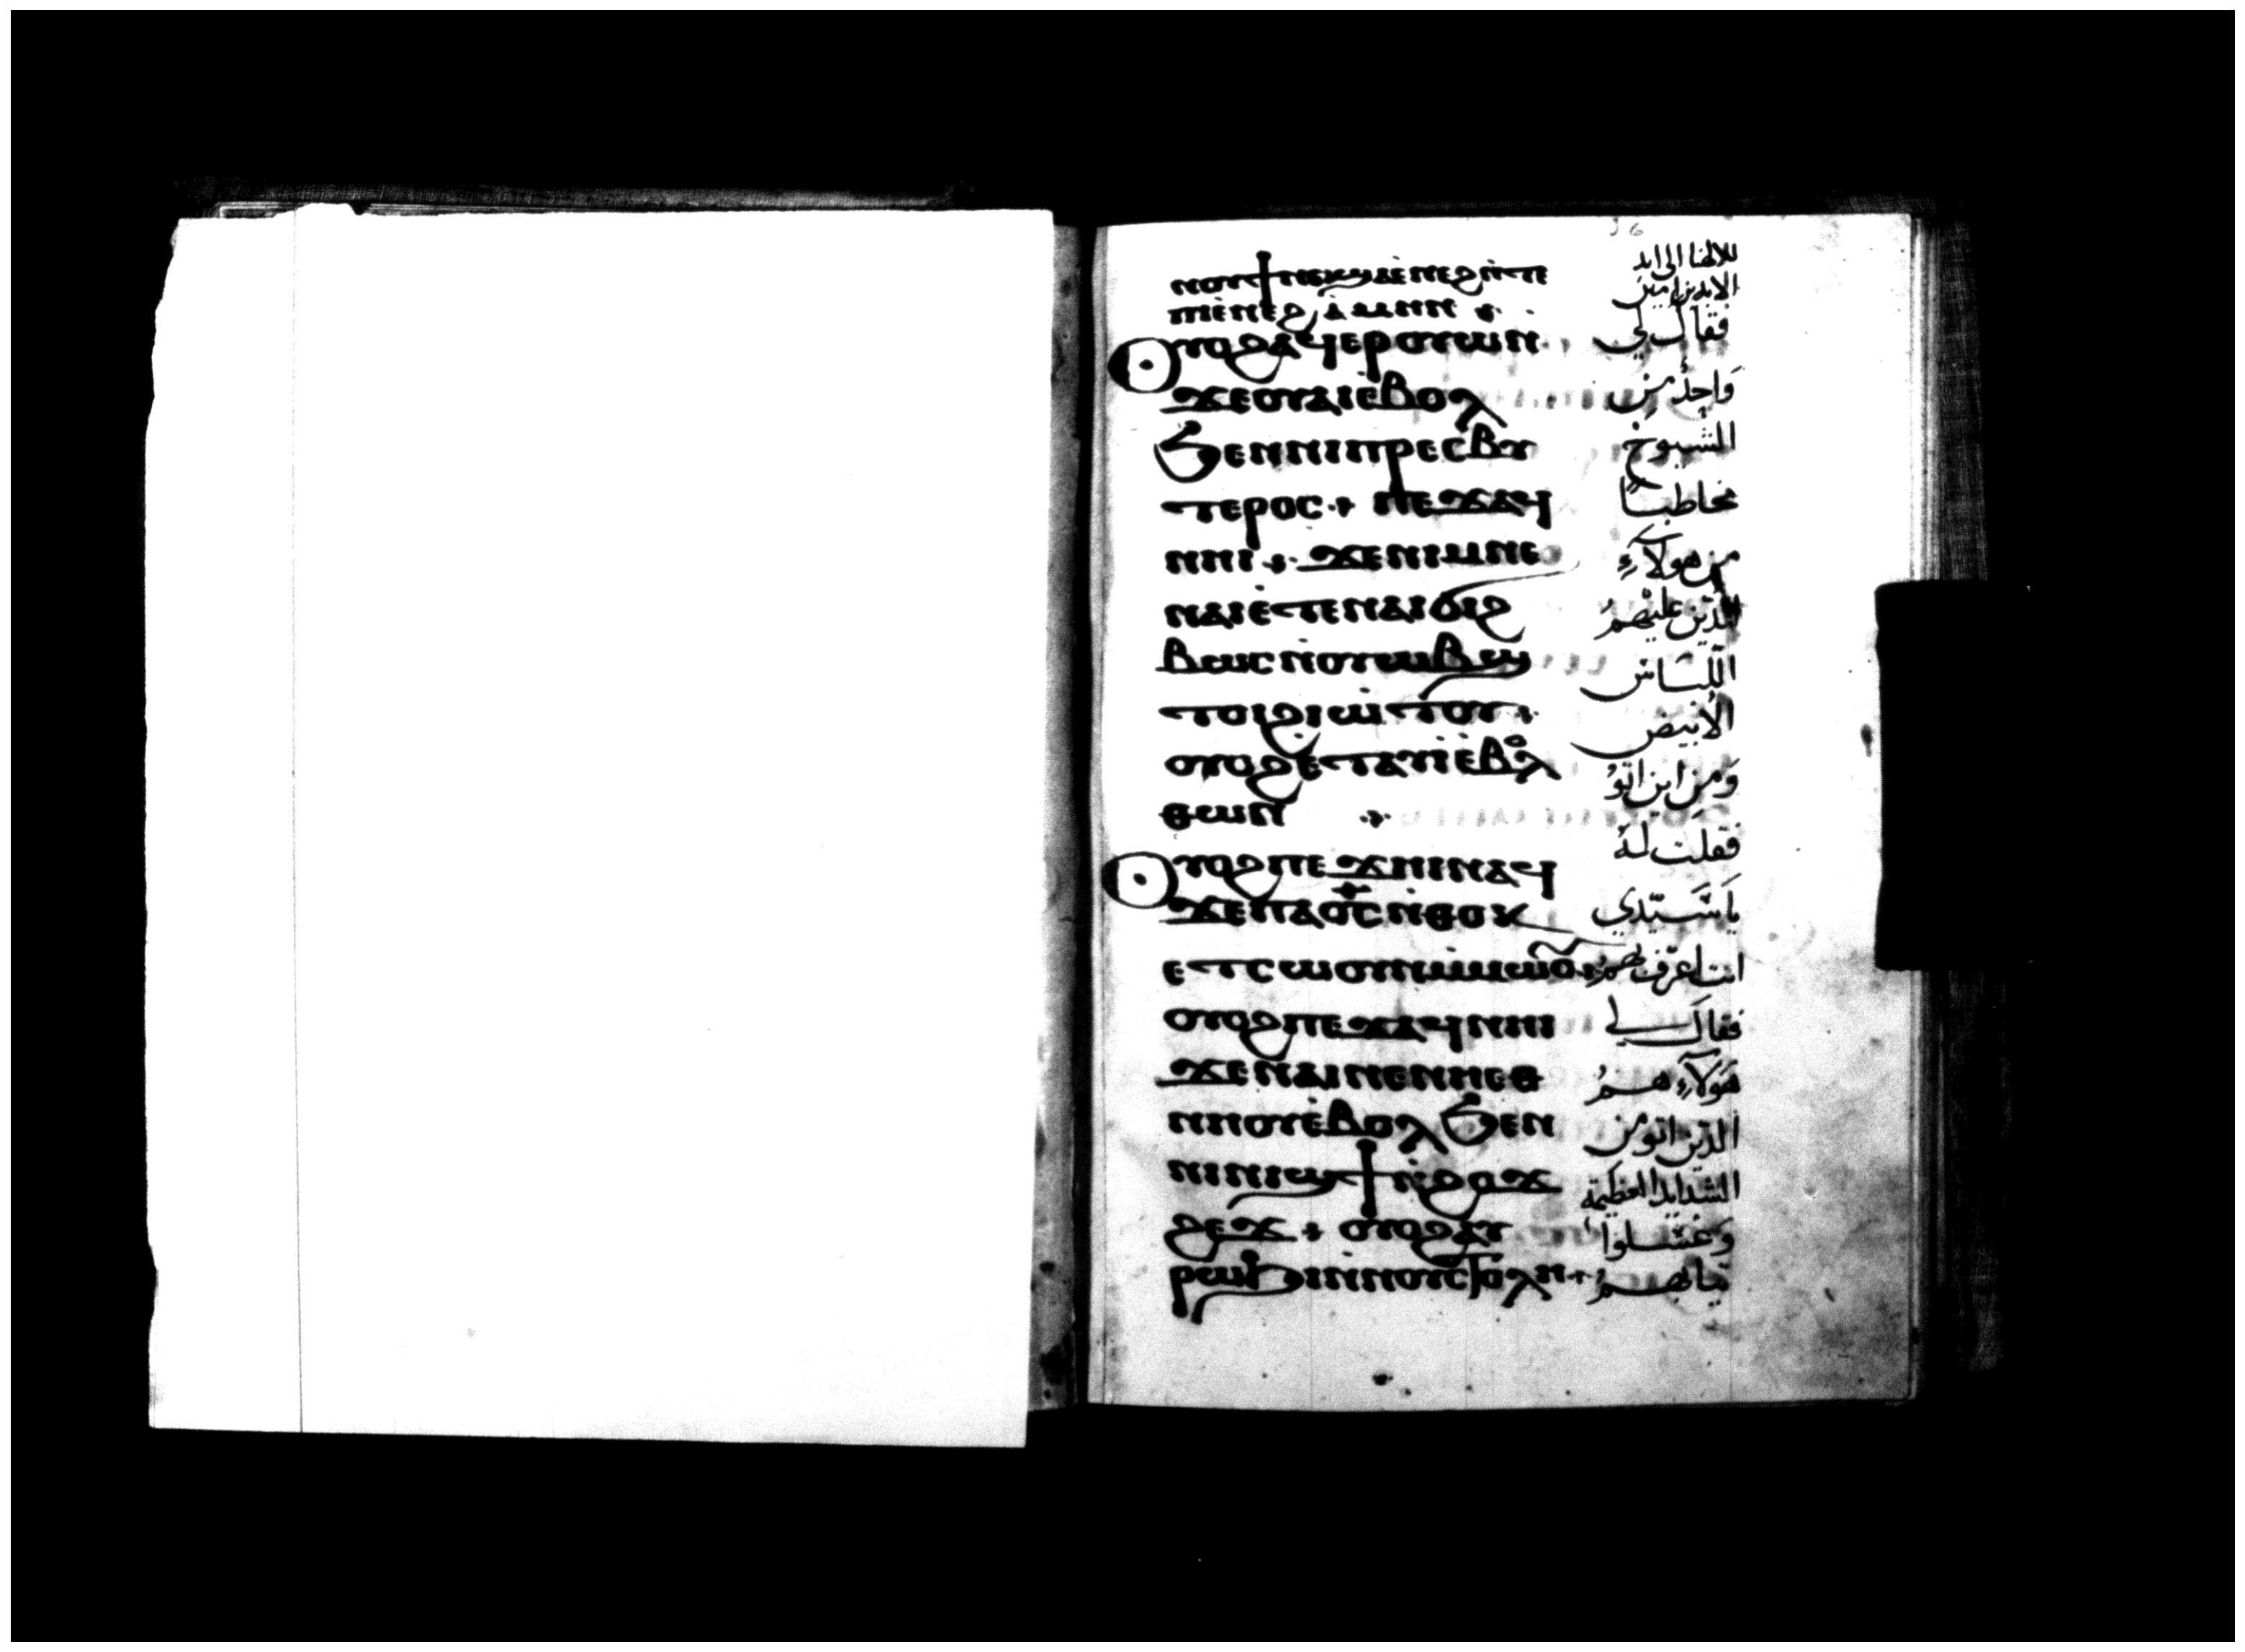 ⲛⲟⲩϯⲛⲉⲙϣⲁⲉ̀ⲛⲉϩⲛ̀ⲧⲉ
ⲡⲓⲉ̀ⲛⲉϩ ⲁ̀ⲙⲏⲛ
ⲟⲩⲟϩⲁϥⲉⲣⲟⲩⲱ̀ⲛ
ϫⲉⲟⲩⲁⲓⲉ̀ⲃⲟⲗ
ϧⲉⲛⲛⲓⲡⲣⲉⲥⲃⲩ
ⲧⲉⲣⲟⲥ ⲡⲉϫⲁϥ
ⲛⲏⲓ ϫⲉⲛⲓⲙⲛⲉ
ⲛⲁⲓⲉ̀ⲧⲉⲛⲁⲓϭⲓϩ
ⲃⲱⲥⲛ̀ⲟⲩⲱⲃϣ
ⲧⲟⲓϩⲓⲱ̀ⲧⲟⲩ
ⲟⲩⲟϩⲉ̀ⲧⲁⲩⲓ̀ⲉ̀ⲃⲟⲗ
ⲑⲱⲛ
ⲟⲩⲟϩⲡⲉϫⲏⲓⲛⲁϥ
ϫⲉⲡⲁⲟ̅ⲥ̅ⲛ̀ⲑⲟⲕ
ⲉⲧⲥⲱⲟⲩⲛⲙ̀ⲙⲱⲟⲩ
ⲟⲩⲟϩⲡⲉϫⲁϥⲛⲏⲓ
ϫⲉⲛⲁⲓⲛⲉⲛⲏⲉⲑ
ⲛⲏⲟⲩⲉ̀ⲃⲟⲗϧⲉⲛ
ⲛⲓⲛⲓϣϯⲛ̀ϩⲟϫ
ϩⲉϫ ⲟⲩⲟϩⲁⲩ
ⲣⲱϧⲓⲛ̀ⲛⲟⲩⲥⲧⲟⲗⲏ
لالهنا الى ابد
الابدين امين
فقال لي
وَاحِدٌ مِن
الشيوخ
مخاطباً
من هولآءِ
الذين عليهمُ
اللباس
الأبيض
وَمِن اين اتوُ
فقلت لهُ
يا سَيّدي
انت اعرف بهمُ
فقال لي
هَولآءِ همُ
الذين اتو من
الشدايد العظيمة
وَغسَلوا
ثيابهمُ